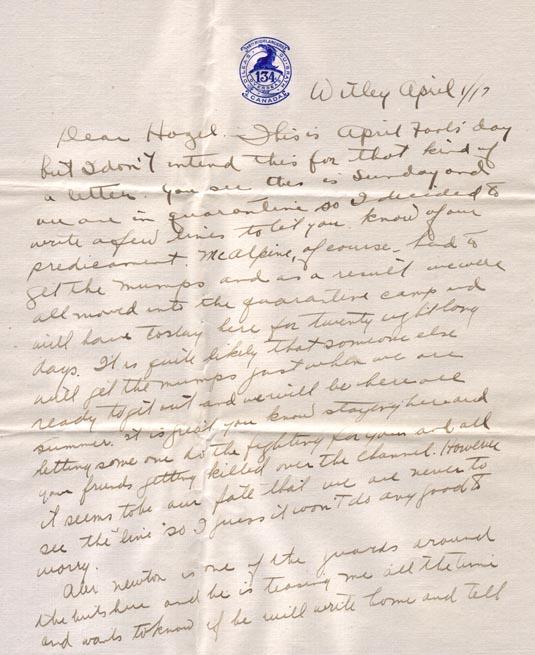 134
CANADA
Witley April 1/17
Dear Hazel. This is April Fools' day
but I don't intend this for that kind of
a letter. You see this is Sunday and
we are in quarantine so I decided to
write a few lines to let you know of our
predicament. McAlpine, of course - had to
get the mumps and as a result we were
all moved into the quarantine camp and
will have to stay here for twenty eight long
days. It is quite likely that someone else
will get the mumps just when we are
ready to get out and we will be here all
summer. It is great you know staying here and
letting some one do the fighting for you and all
your friends getting killed over the channel. However
it seems to be our fate that we are never to
see the "line" so I guess it won't do any good to
worry.
Newton is one of the guards around
the huts here and he is teasing me all the time
and wants to know if he will write home and tell